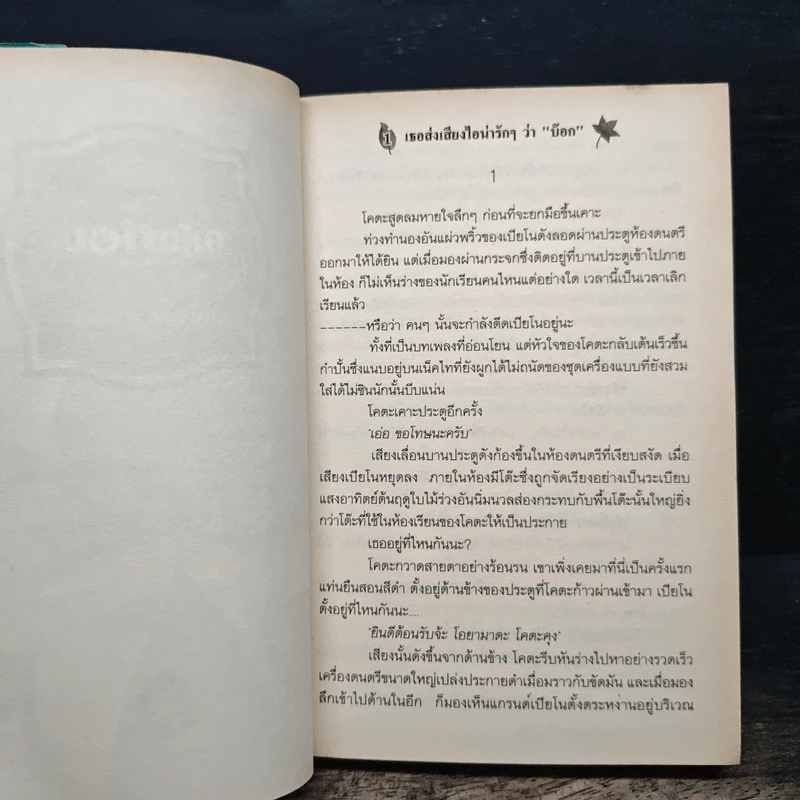 1 เธอส่งเสียงไอน่ารักๆ ว่า "บ๊อก"
1
โคตะสูดลมหายใจลึกๆ ก่อนที่จะยกมือขึ้นเคาะ
ท่วงทำนองอันแผ่วพริ้วของเปียโนดังลอดผ่านประตูห้องดนตรี
ออกมาให้ได้ยิน แต่เมื่อมองผ่านกระจกซึ่งติดอยู่ที่บานประตูเข้าไปภาย
ในห้อง ก็ไม่เห็นร่างของนักเรียนคนไหนแต่อย่างใด เวลานี้เป็นเวลาเลิก
เรียนแล้ว
------หรือว่า คนๆ นั้นจะกำลังดีดเปียโนอยู่นะ
ทั้งที่เป็นบทเพลงที่อ่อนโยน แต่หัวใจของโคตะกลับเต้นเร็วขึ้น
กำปั้นซึ่งแนบอยู่บนเน็คไทที่ยังผูกได้ไม่ถนัดของชุดเครื่องแบบที่ยังสวม
ใส่ได้ไม่ชินนักนั้นบีบแน่น
โคตะเคาะประตูอีกครั้ง
"เอ่อ ขอโทษนะครับ"
เสียงเลื่อนบานประตูดังก้องขึ้นในห้องดนตรีที่เงียบสงัด เมื่อ
เสียงเปียโนหยุดลง ภายในห้องมีโต๊ะซึ่งถูกจัดเรียงอย่างเป็นระเบียบ
แสงอาทิตย์ต้นฤดูใบไม้ร่วงอันนิ่มนวลส่องกระทบกับพื้นโต๊ะนั้นใหญ่ยิ่ง
กว่าโต๊ะที่ใช้ในห้องเรียนของโคตะให้เป็นประกาย
เธออยู่ที่ไหนกันนะ?
โคตะกวาดสายตาอย่างร้อนรน เขาเพิ่งเคยมาที่นี่เป็นครั้งแรก
แท่นยืนสอนสีดำ ตั้งอยู่ด้านข้างของประตูที่โคตะก้าวผ่านเข้ามา เปียโน
ตั้งอยู่ที่ไหนกันนะ....
"ยินดีต้อนรับจ้ะ โอยามาดะ โคตะคุง"
เสียงนั้นดังขึ้นจากด้านข้าง โคตะรีบหันร่างไปหาอย่างรวดเร็ว
เครื่องดนตรีขนาดใหญ่เปล่งประกายดำเมื่อมราวกับขัดมัน และเมื่อมอง
ลึกเข้าไปด้านในอีก ก็มองเห็นแกรนด์เปียโนตั้งตระหง่านอยู่บริเวณ